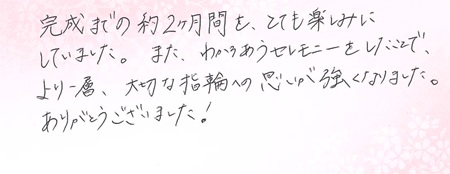 完成までの約2ヶ月間を、とても楽しみに
していました。また、わかちあうセレモニーをしたことで、
より一層、大切な指輪への思いが強くなりました。
ありがとうございました!